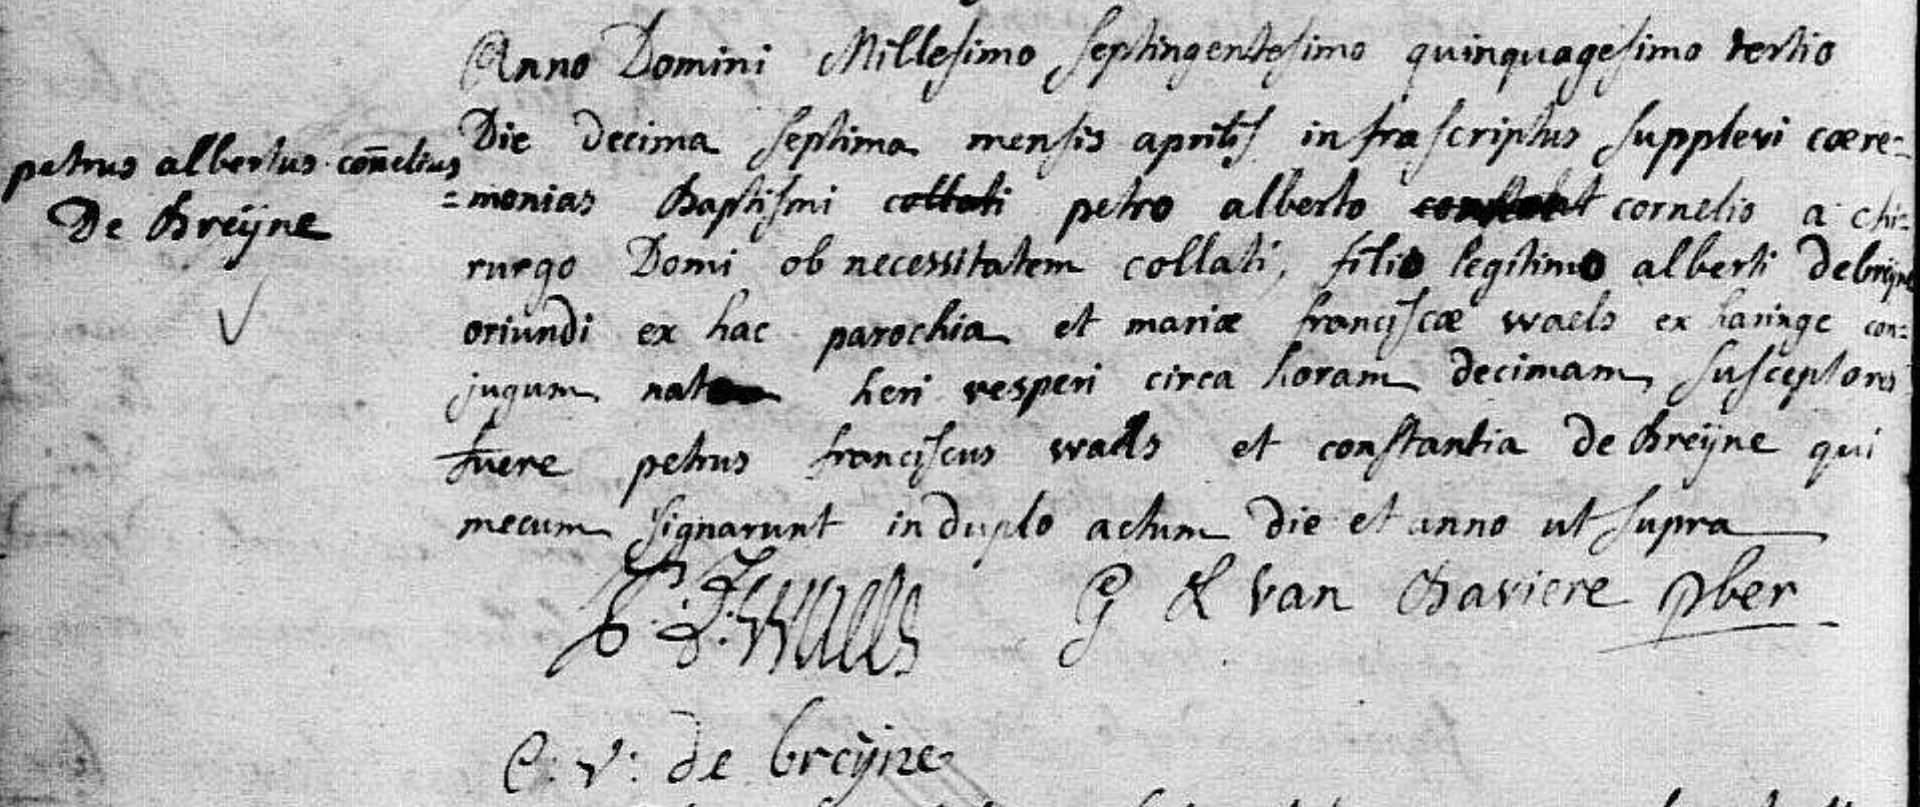 Anno Domini Millesimo septingentesimo quinquagesimo tertio
Die decima septima mensis aprilis infrascriptus supplevi cære-
petrus albertus cornelius
De Breÿne
=monias Baptismi collati petro alberto constant cornelio a chi-
rurgo Domi ob necessitatem collati, filio legitimo alberti Debreÿne
oriundi ex hac parochia et mariæ franciscæ waels ex haringe con=
jugum nat heri vesperi circa horam decimam, susceptores
fuere petrus franciscus waels et constantia de Breÿne qui
mecum signarunt in duplo actum die et anno ut supra
P: F: Waels
G L van Baviere pber
C: V: de breÿne